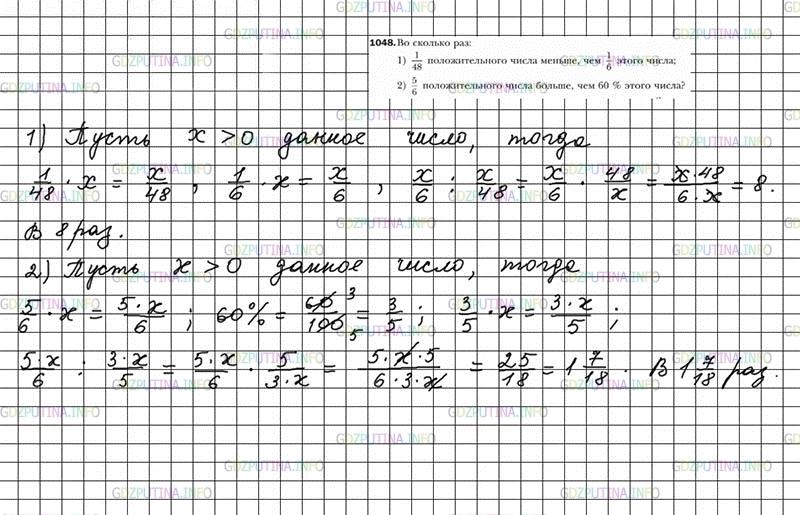 1048. Во сколько раз:
1) 1/48 положительного числа меньше, чем 1/6 этого числа;
2) 5/6 положительного числа больше, чем 60 % этого числа?
1) Пусть x > 0 данное число, тогда
1/48 · x = x/48 ; 1/6 · x = x/6 , x/6 : x/48 = x/6 · 48/x = x·48/6·x = 8.
В 8 раз.
2) Пусть x > 0 данное число, тогда
5/6 · x = 5·x/6 ; 60% = 60/100 = 3/5 ; 3/5 · x = 3·x/5 ;
5·x/6 : 3·x/5 = 5·x/6 · 5/3·x = 5·x·5/6·3·x = 25/18 = 1 7/18 . В 1 7/18 раз.
GDZPUTINA.INFO